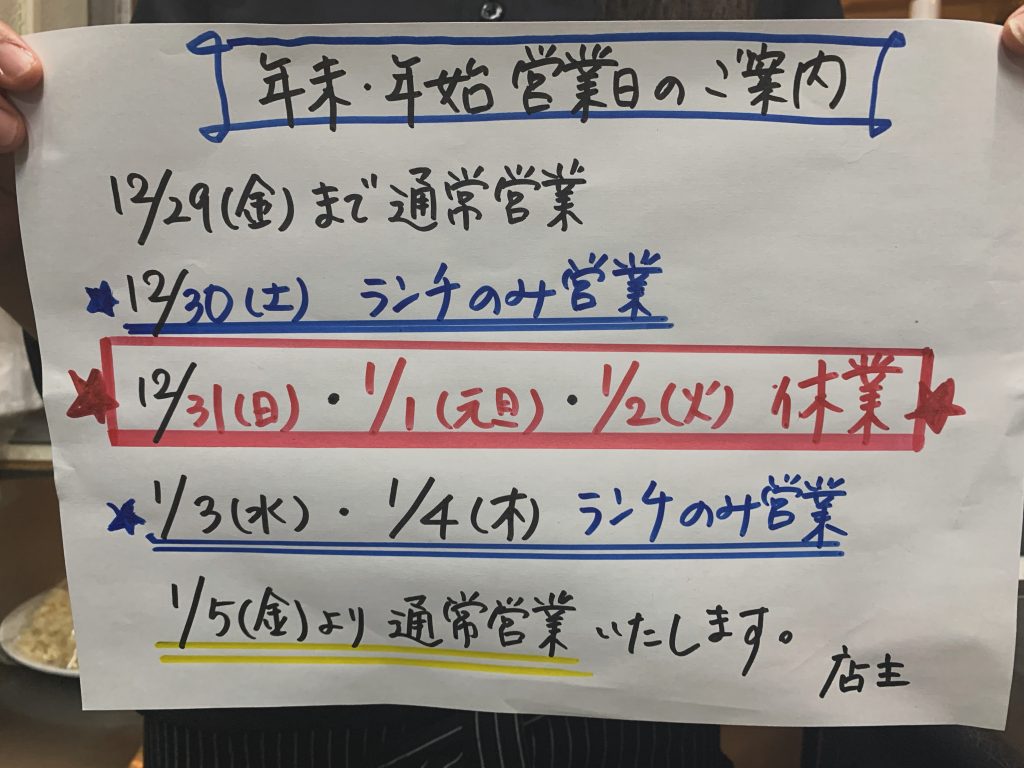 年末・年始 営業日のご案内
12/29(金)まで通常営業
★12/30(土) ランチのみ営業
★12/31(日)・1/1(元旦)・1/2(火) 休業★
★1/3(水)・1/4(木) ランチのみ営業
1/5(金)より通常営業いたします。
店主